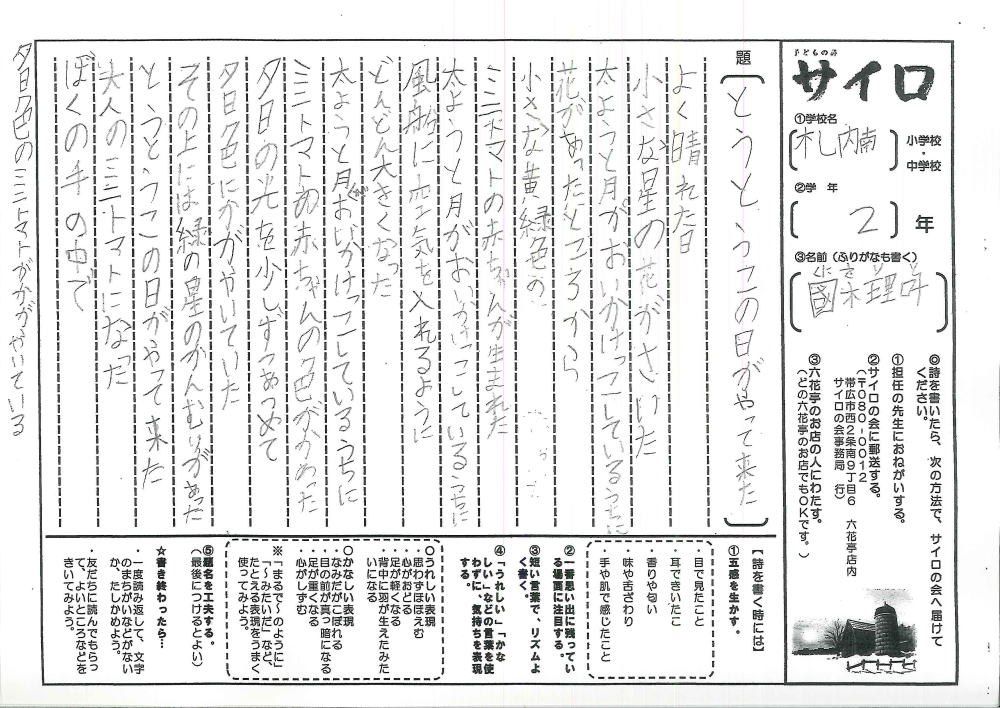 子どもの詩
サイロ
①学校名
札内南
小学校
・
中学校
②学 年
2
年
③名前（ふりがなも書く）
國木理叶
◎詩を書いたら、次の方法で、サイロの会へ届けて
ください。
①担任の先生におねがいする。
②サイロの会に郵送する。
（〒080-0012
帯広市西2条南9丁目6　六花亭店内
サイロの会事務局　行）
③六花亭のお店の人にわたす。
（どの六花亭のお店でもOKです。）
題
とうとうこの日がやって来た
よく晴れた日
小さな星の花がさいた
太ようと月がおいかけっこしているうちに
花があったところから
小さな黄緑色の
ミニトマトの赤ちゃんが生まれた
太ようと月がおいかけっこしているうちに
風船に空気を入れるように
どんどん大きくなった
太ようと月がおいかけっこしているうちに
ミニトマトの赤ちゃんの色がかわった
夕日の光を少しずつあつめて
夕日色にかがやいていた
その上には緑の星のかんむりがあった
とうとうこの日がやって来た
大人のミニトマトになった
ぼくの手の中で
夕日色のミニトマトがかがやいている
【詩を書く時には】
①五感を生かす。
・目で見たこと
・耳できいたこ
・香りや匂い
・味や舌ざわり
・手や肌で感じたこと
②一番思い出に残ってい
る場面に注目する。
③短い言葉で、リズムよ
く書く
④「うれしい」「かな
しい」などの言葉を使
わずに、気持ちを表現
する。
○うれしい表現
・思わずほほえむ
・心がおどる
・足が軽くなる
・背中に羽が生えたみた
いになる
○かなしい表現
・なみだがこぼれる
・目の前が真っ暗になる
・足が重くなる
・心がしずむ
※「まるで～のように」
「～みたいだ」など、
たとえる表現をうまく
使ってみよう。
⑤題名を工夫する。
（最後につけるとよい）
★書き終わったら…
・一度読み返して、文字
のまちがいなどがない
か、たしかめよう。
・友だちに読んでもらっ
て、よいところなどを
きいてみよう。